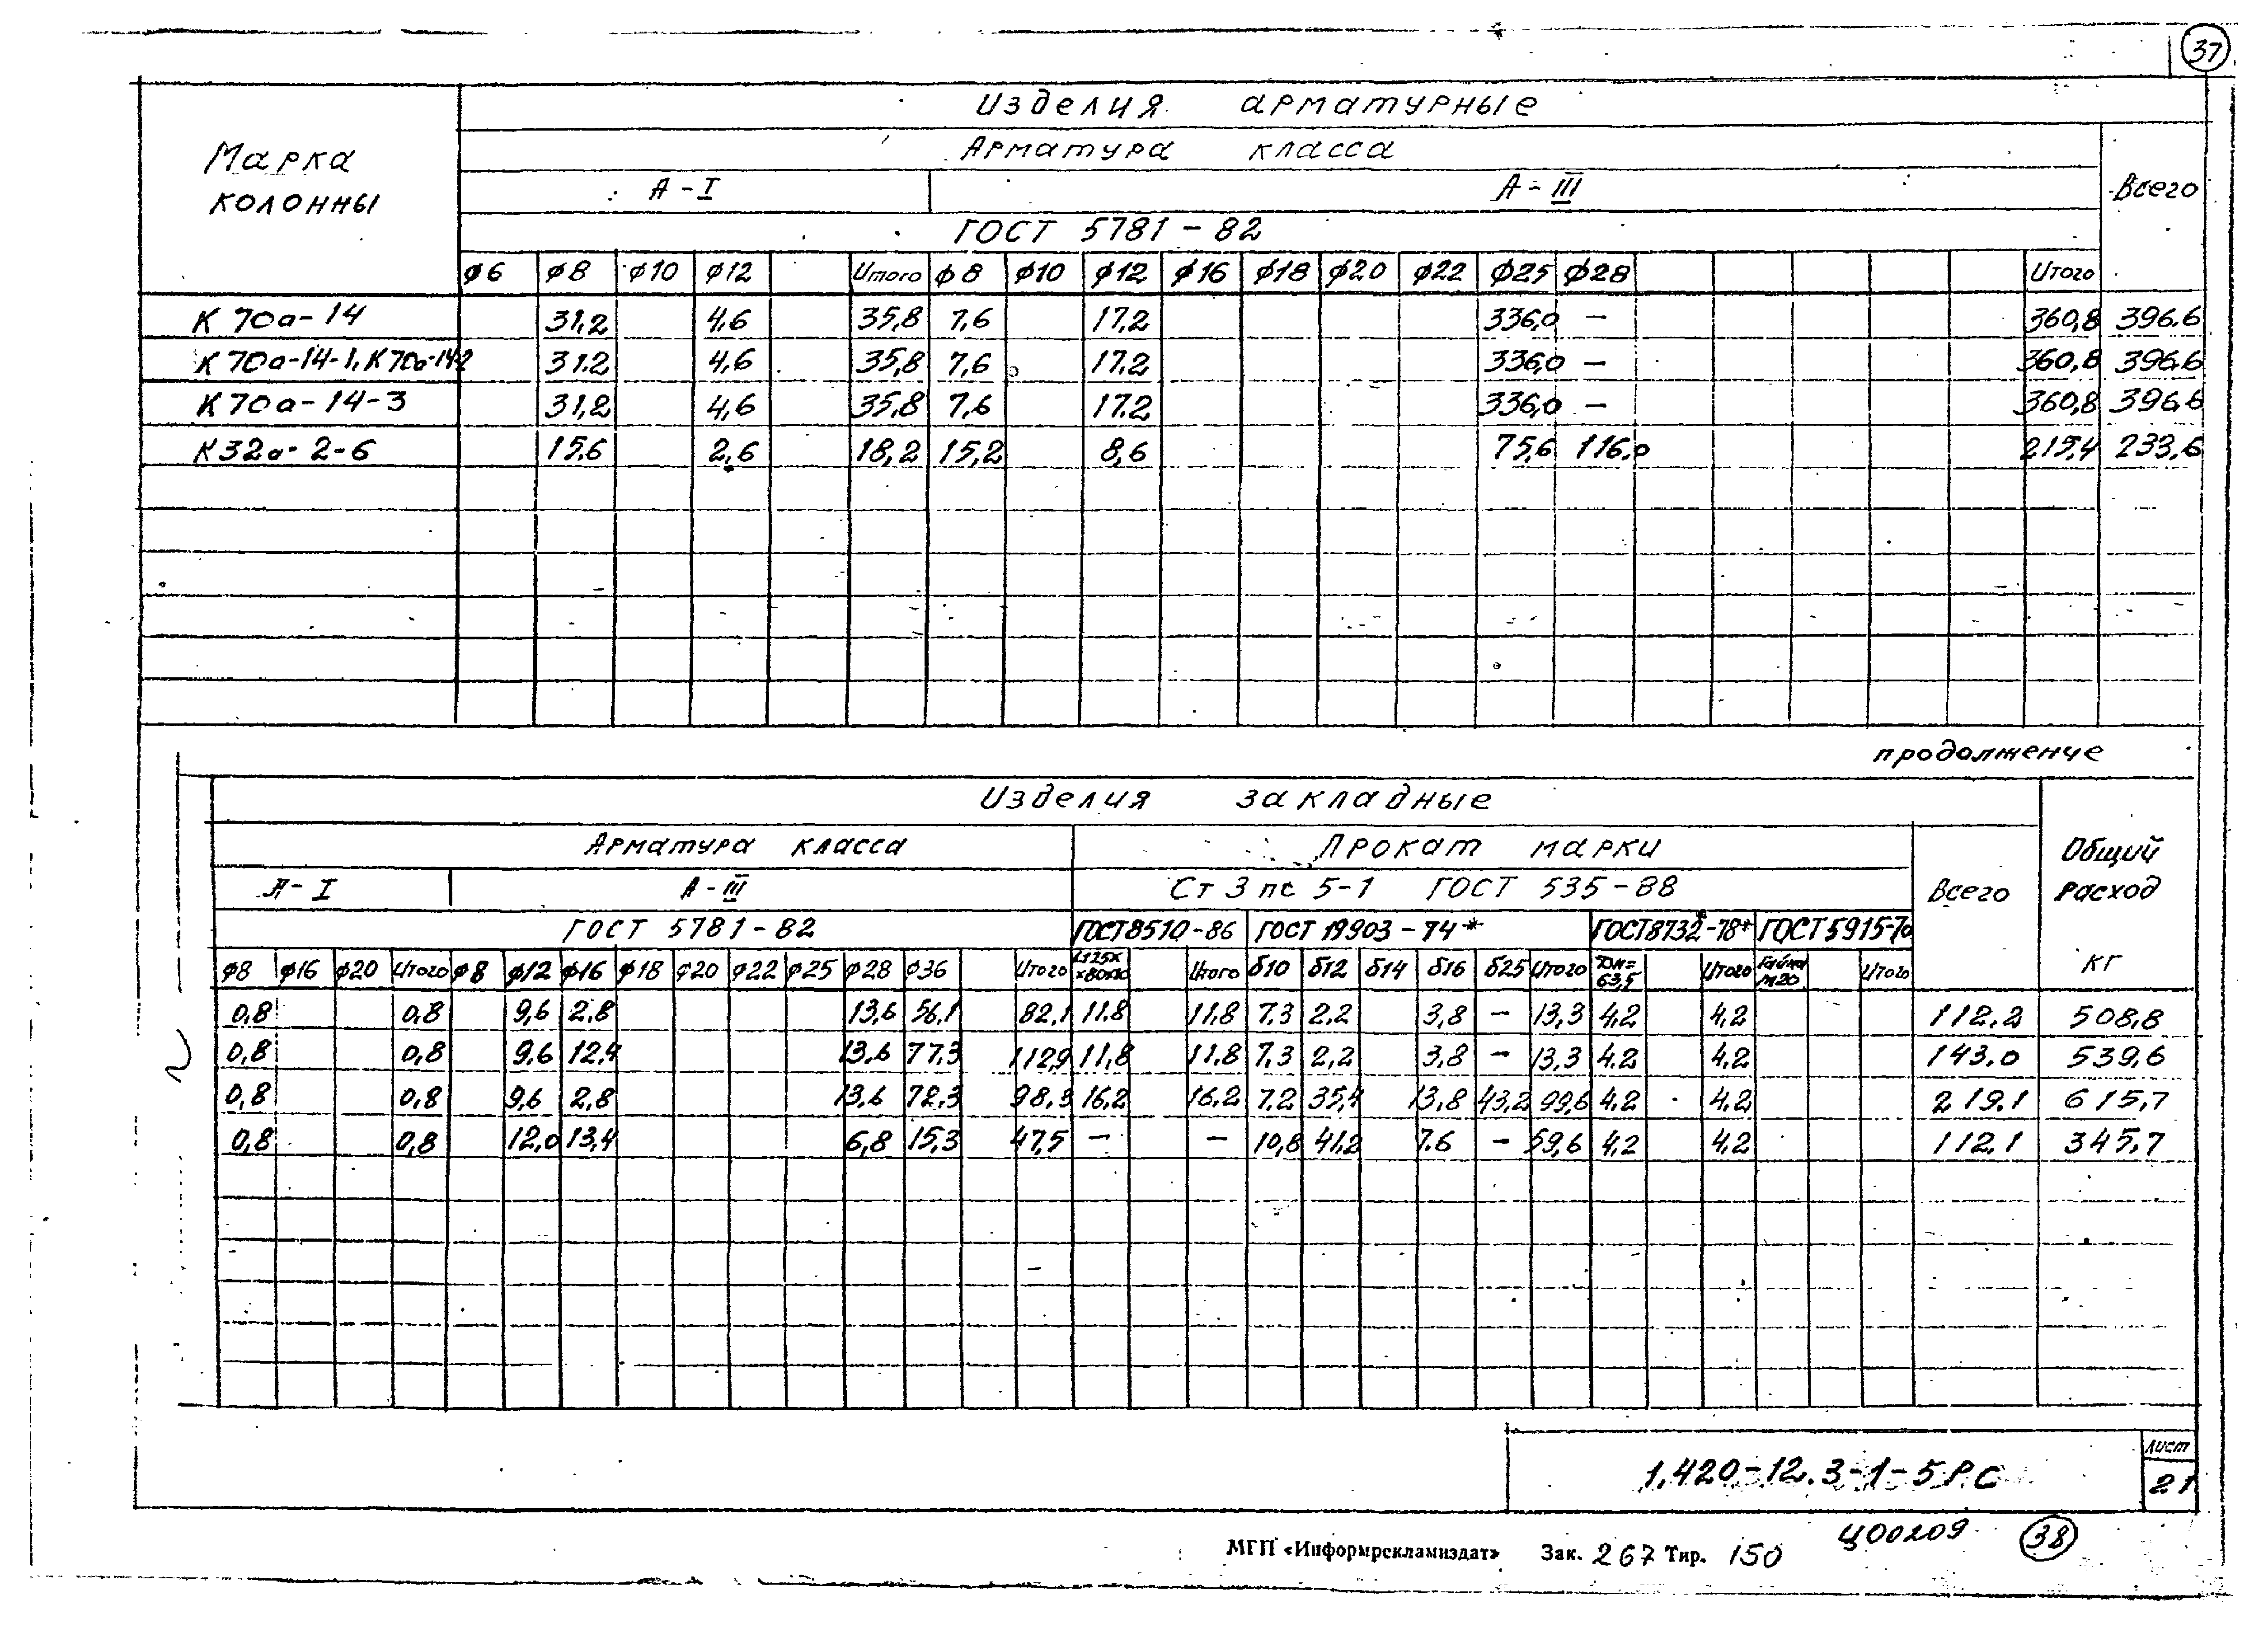 37
Изделия арматурные
Марка колонны
Арматура класса
Всего
А-I А-III
ГОСТ 5781-82
ф6 ф8 ф10 ф12 Итого ф8 ф10 ф12 ф16 ф18 ф20 ф22 ф25 ф28 Итого
К 70а-14 31,2 4,6 35,8 7,6 17,2 336,0 — 360,8 396,6
К 70а-14-1, К 70а-14-2 31,2 4,6 35,8 7,6 17,2 336,0 — 360,8 396,6
К 70а-14-3 31,2 4,6 35,8 7,6 17,2 336,0 — 360,8 396,6
К 32а-2-6 15,6 2,6 18,2 15,2 8,6 75,6 116,0 215,4 233,6
продолжение
Изделия закладные
Общий расход кг
Арматура класса Прокат марки
Всего
А-I А-III Ст 3 пс 5-1 ГОСТ 535-88
ГОСТ 5781-82 ГОСТ 8510-86 ГОСТ 19903-74* ГОСТ 8732-78* ГОСТ 5915-70
ф8 ф16 ф20 Итого ф8 ф12 ф16 ф18 ф20 ф22 ф25 ф28 ф36 Итого L125х х80х10 Итого δ10 δ12 δ14 δ16 δ25 Итого Дн= 63,5 Итого Гайка М20 Итого
0,8 0,8 9,6 2,8 13,6 56,1 82,1 11,8 11,8 7,3 2,2 3,8 — 13,3 4,2 4,2 112,2 508,8
0,8 0,8 9,6 12,4 13,6 77,3 112,9 11,8 11,8 7,3 2,2 3,8 — 13,3 4,2 4,2 143,0 539,6
0,8 0,8 9,6 2,8 13,6 72,3 98,3 16,2 16,2 7,2 35,4 13,8 43,2 99,6 4,2 4,2 219,1 615,7
0,8 0,8 12,0 13,4 6,8 15,3 47,5 — — 10,8 41,2 7,6 — 59,6 4,2 4,2 112,1 345,7
1.420-12.3-1-5РС
Лист
21
МГП «Информрекламиздат» Зак. 267 Тир. 150
Ц00209
38